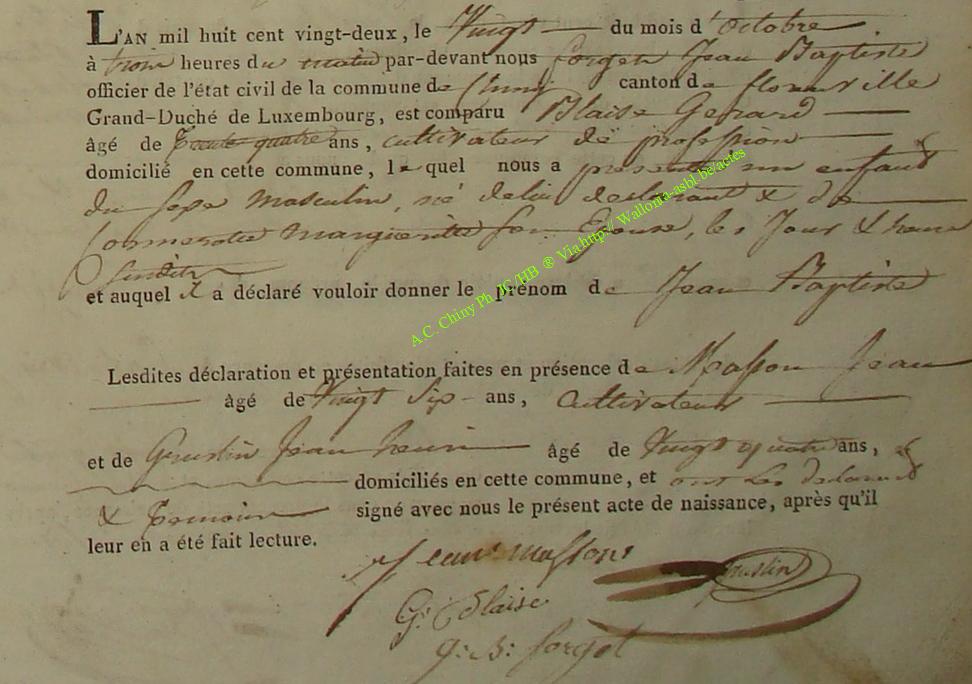 L'AN mil huit cent vingt-deux, le Vingt du mois d'octobre
à trois heures du matin par-devant nous forget Jean Baptiste
officier de l'état civil de la commune de Chiny canton de florenville
Grand-Duché de Luxembourg, est comparu Blaise Gerard
âgé de Trente quatre ans, cultivateur de profession
domicilié en cette commune, lequel nous a présenté un enfant
du sexe masculin, né de lui declarant & de
marguerite son Epouse, les Jour & heure
susdits
et auquel il a déclaré vouloir donner le prénom de Jean Baptiste
Lesdites déclaration et présentation faites en présence de Masson Jean
âgé de Vingt Six ans, cultivateur
et de Gruslin Jean henri âgé de Vingt quatre ans,
domiciliés en cette commune, et ont les declarant
& temoins signé avec nous le présent acte de naissance, après qu'il
leur en a été fait lecture.
Jean massons
gruslin
G: Blaise
J: B: forget
A.C. Chiny Ph. JC/HB ® Via http:// Wallonia-asbl.be/actes